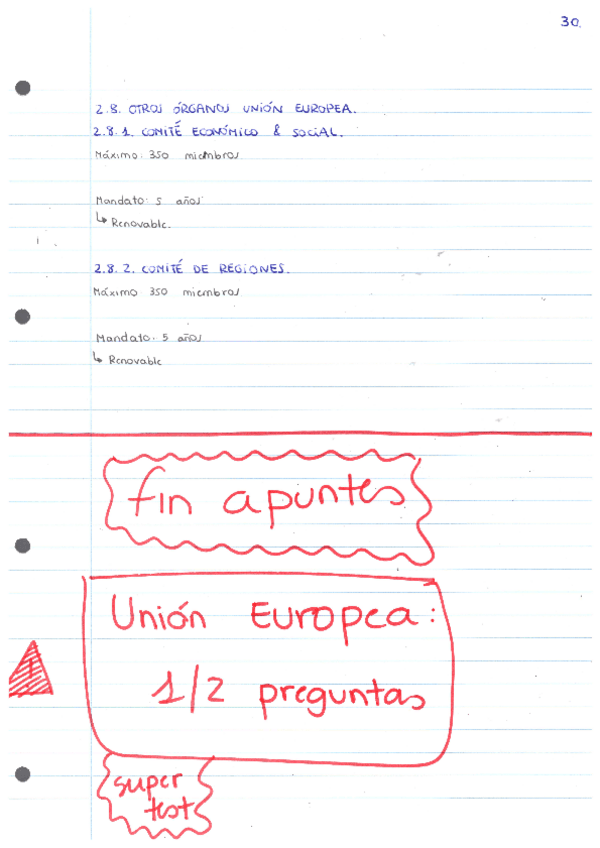 30.
2.8. OTROS ÓRGANOS UNIÓN EUROPEA.
2.8.1. COMITÉ ECONÓMICO & SOCIAL.
Máximo: 350 miembros
Mandato: 5 años
↳ Renovable.
2.8.2. COMITÉ DE REGIONES.
Máximo 350 miembros
Mandato: 5 años
↳ Renovable
fin apuntes
Unión Europea:
1/2 preguntas
super
test